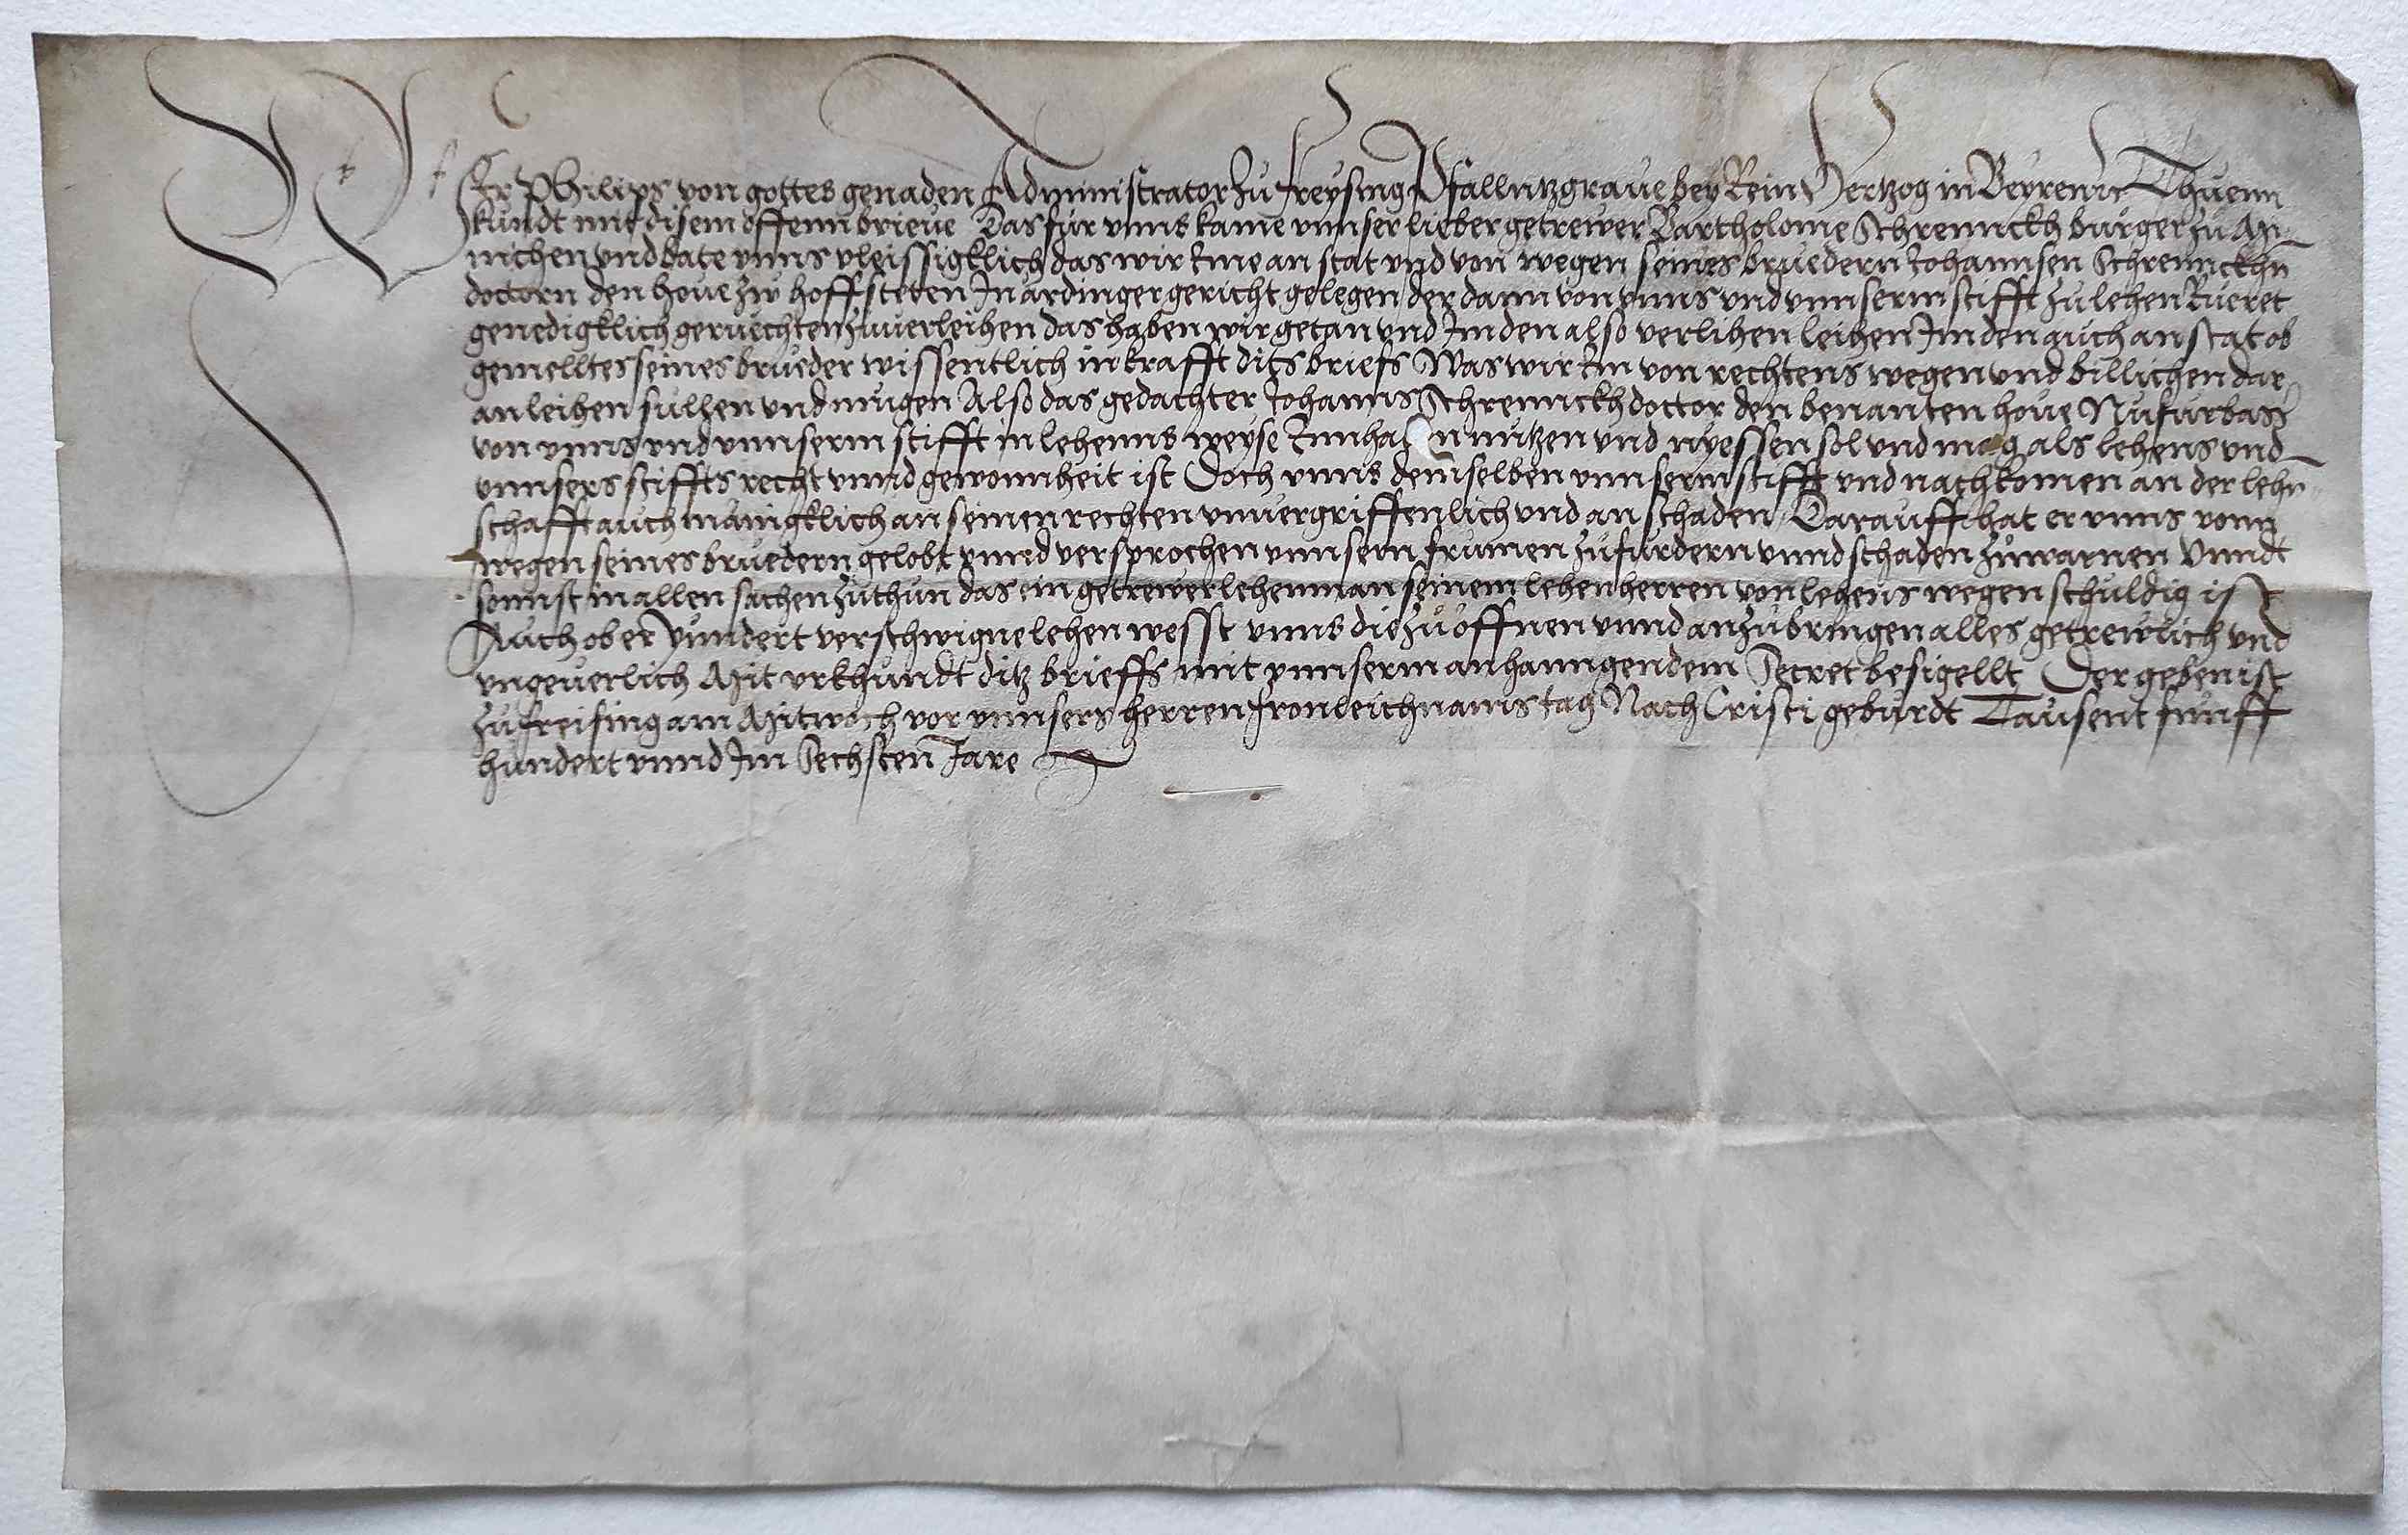 Wir Philips von gottes genaden Administrator zu Freysing Pfallnntzgraue bey Rein Hertzog in Beyrenn etc Thuenn
kundt mit disem offenn brieue Das fur vnns kame vnnser lieber getrewer Bartholome Schrennckh burger zu Mu¬
nichen vnd bate vnns vleissigklich das wir Ime an stat vnd von wegen seines bruedern Johannsen Schrennckhn
doctorn den houe zw hoffsteten In ardinger gericht gelegen der dann von vnns vnd vnnserm stifft zu lehen Rueret
genedigklich geruechten zuuerleihen das haben wir getan vnd Im den also verlihen leihen Im den auch an stat ob
gemelltes seines brueder wissentlich in krafft dits briefs Was wir Im von rechtens wegen vnd billichen dar
an leihen sullen vnd mugen Also das gedachter Johanns Schrennckh doctor den benanten houe Nufurbass
von vnns vnd vnnserm stifft in lehenns weyse Innhaben nutzen vnd nyessen sol vnd mag als lehens vnd
vnnsers stiffts recht vnnd gewonnheit ist Doch vnns demselben vnnserm stifft vnd nachkomen an der lehn
schafft auch manigklich an seinen rechten vnuergriffenlich vnd an schaden Darauff hat er vnns vonn
wegen seines bruedern gelobt vnnd versprochen vnnsern frumen zufurdern vnnd schaden zuwarnen Vnndt
sonnst in allen sachen zuthun das ein getrewer lehenman seinem lehenherren von lehens wegen schuldig ist
Auch ob er yundert verschwigne lehen wesst vnns die zu offnen vnnd anzubringen alles getrewlich vnd
vngeuerlich Mit vrkhundt ditz brieffs mit vnnserm anhanngendem Secret besigellt Der geben ist
zu freising am Mitwoch vor vnnsers herren fronleichnams tag Nach Cristi geburdt Tausent funff
hundert vnnd Im Sechsten Jare